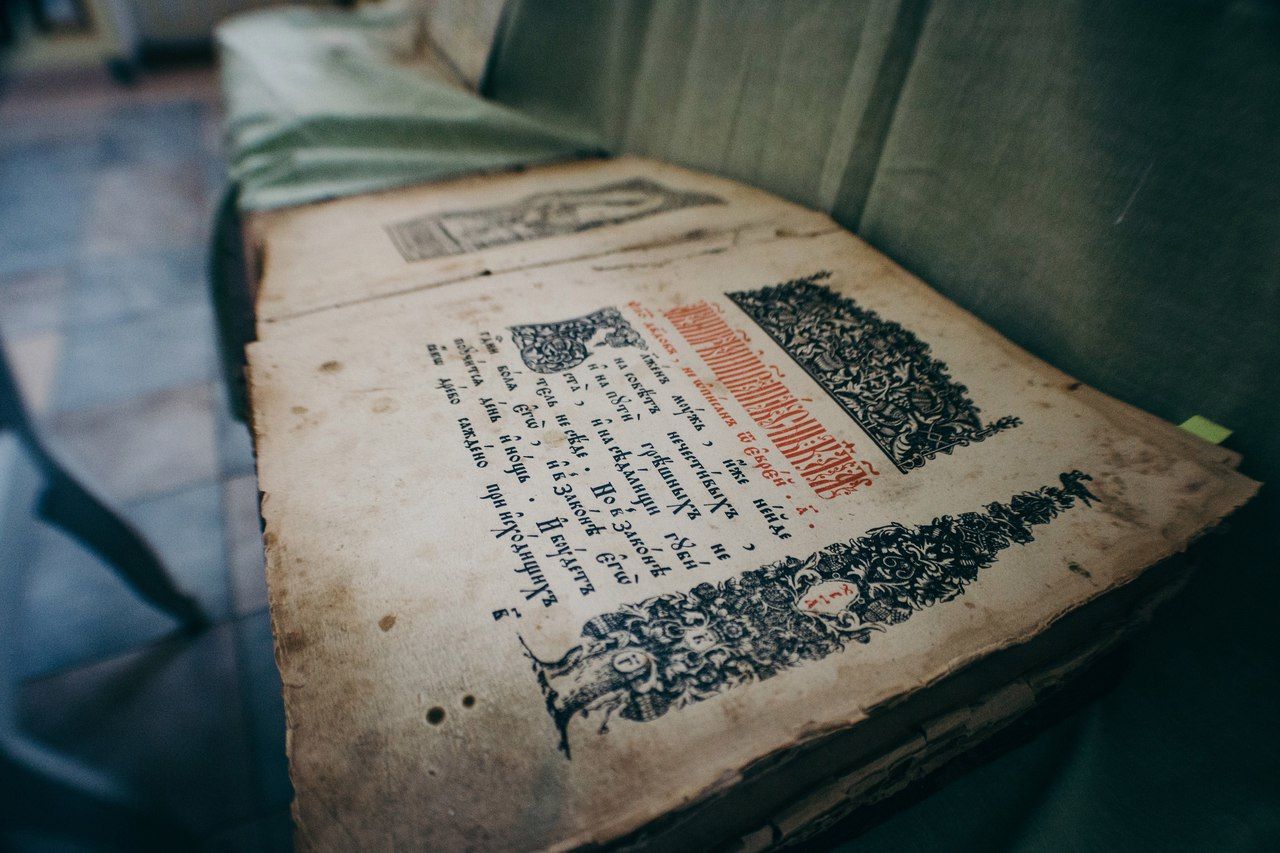 не ѡпи́санъ ѿ Евре́й . а҃ .
Бл҃же́нъ мꙋ́жъ , и́же не и́де
на совѣ́тъ нечести́выхъ ,
и҆ на пꙋти́ грѣ́шныхъ не
ста̀ , и҆ на сѣда́лищи гꙋби́
тель не сѣ́де . Но в зако́нѣ
гд҃ни во́лѧ є҆гѡ̀ , и҆ в зако́нѣ є҆гѡ̀
поꙋчи́тсѧ де́нь и҆ но́щь . И҆ бꙋ́детъ
дре́во сажде́но при и҆схо́дищихъ